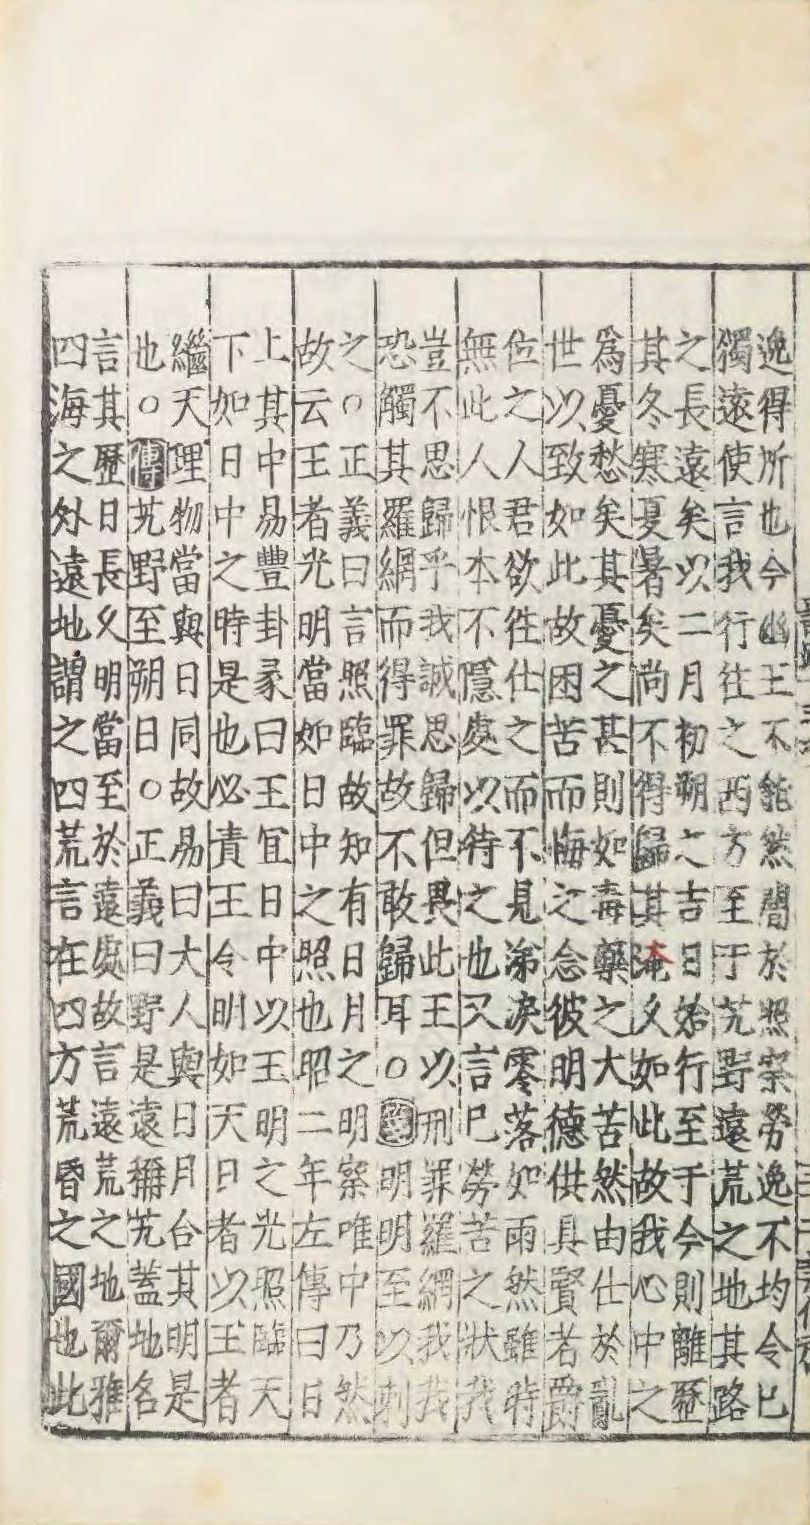 逸得所也今幽王不能然闇於照察勞逸不均令已
獨遠使言我行往之西方至于艽野遠荒之地其路
之長遠矣以二月初朔之吉日始行至于今則離歷
其冬寒夏暑矣尚不得歸其淹久如此故我心中之
爲憂愁矣其憂之甚則如毒藥之大苦然由仕於亂
世以致如此故困苦而悔之念彼明德供具賢者爵
位之人君欲往仕之而不見涕淚零落如雨然雖時
無此人恨本不隱處以待之也又言已勞苦之狀我
豈不思歸乎我誠思歸但畏此王以刑罪羅網我我
恐觸其羅網而得罪故不敢歸耳○箋明明至以刺
之○正義曰言照臨故知有日月之明察唯中乃然
故云王者光明當如日中之照也昭二年左傳曰日
上其中易豐卦彖曰王宜日中以王明之光照臨天
下如日中之時是也必責王令明如天日者以王者
繼天理物當與日同故易曰大人與日月合其明是
也○傳艽野至朔日○正義曰野是遠稱艽蓋地名
言其歷日長久明當至於遠處故言遠荒之地爾雅
四海之外遠地謂之四荒言在四方荒昏之國也此